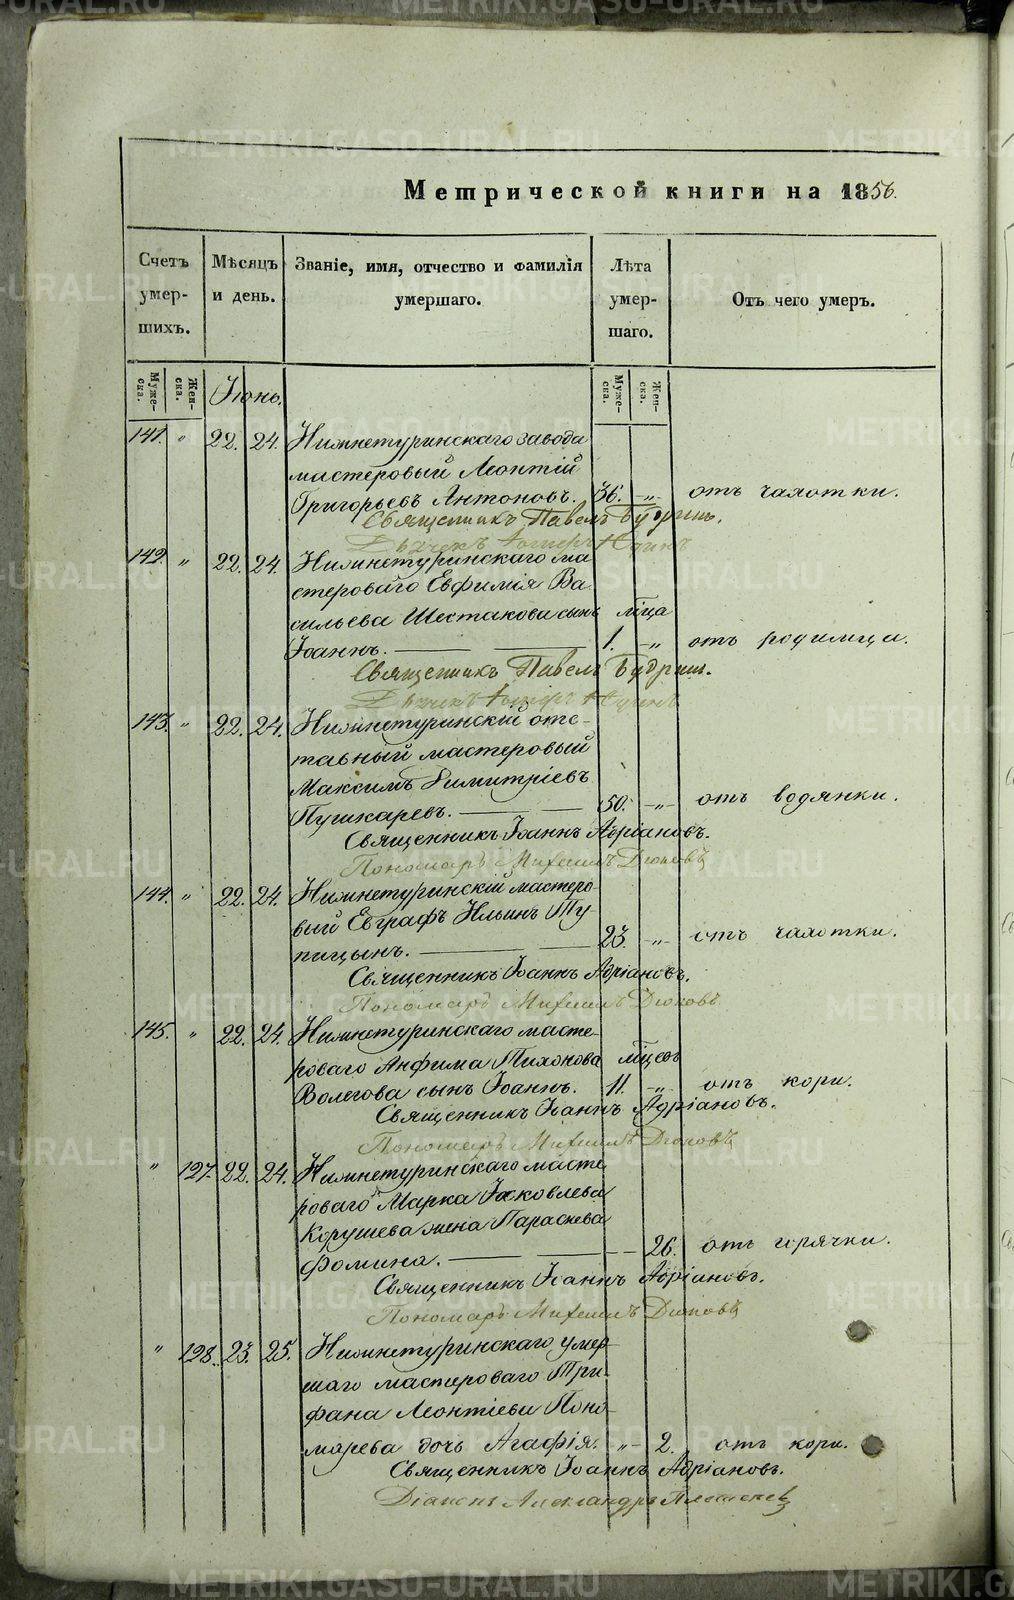 Метрической книги на 1856.
Счетъ умершихъ.
Мѣсяцъ и день.
Званіе, имя, отчество и фамилія умершаго.
Лѣта умершаго.
Отъ чего умеръ.
Мужеска. Женска.
Іюнь.
Мужеска. Женска.
141. " 22. 24. Нижнетуринскаго завода
мастеровый Леонтій
Григорьевъ Антоновъ. 36. " отъ чахотки.
Священникъ Павелъ Будринъ.
Дьячекъ
142. " 22. 24. Нижнетуринскаго ма-
стероваго Евфимія Ва-
сильева Шестакова сынъ мѣца
Іоаннъ. 1. " отъ родимца.
Священникъ Павелъ Будринъ.
Дьячекъ
143. " 22. 24. Нижнетуринскій отс-
тавный мастеровый
Максимъ Димитріевъ
Пушкаревъ. 50. " отъ водянки.
Священникъ Іоаннъ Адріановъ.
Пономарь Михаилъ Дюковъ
144. " 22. 24. Нижнетуринскій мастеро-
вый Евграфъ Ильинъ Ту-
пицынъ. 23. " отъ чахотки.
Священникъ Іоаннъ Адріановъ.
Пономарь Михаилъ Дюковъ
145. " 22. 24. Нижнетуринскаго масте-
роваго Анфима Тихонова мѣцевъ
Волегова сынъ Іоаннъ. 11. " отъ кори.
Священникъ Іоаннъ Адріановъ.
Пономарь Михаилъ Дюковъ
" 127. 22. 24. Нижнетуринскаго масте-
роваго Марка Іаковлева
Корушева жена Параскева
Фомина. 26. отъ горячки.
Священникъ Іоаннъ Адріановъ.
Пономарь Михаилъ Дюковъ
" 128. 23. 25. Нижнетуринскаго умер-
шаго мастероваго Три-
фана Леонтіева Поно-
марева дочь Агафія. " 2. отъ кори.
Священникъ Іоаннъ Адріановъ.
Діаконъ Александръ
METRIKI.GASO-URAL.RU